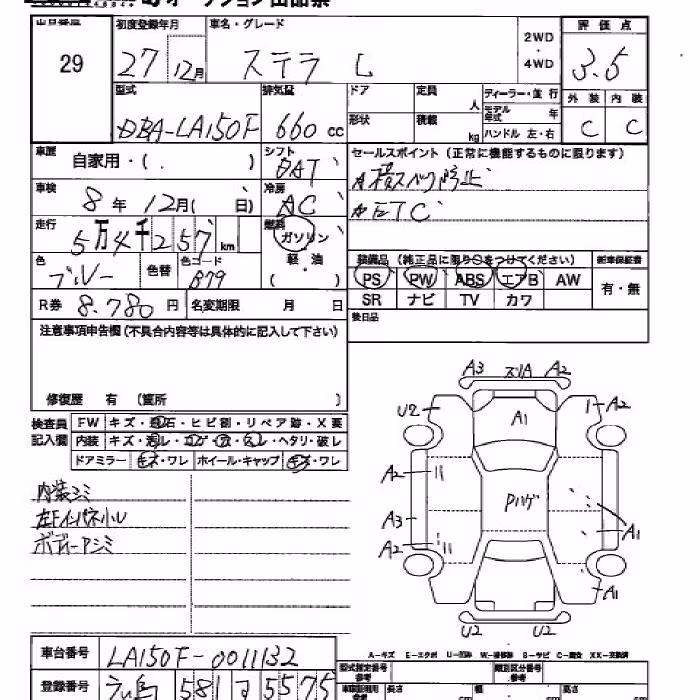 29
初度登録年月 車名・グレード
27 12月 ステラ L
2WD
・
4WD
評価点
3.5
外装 内装
C C
型式 排気量
DBA-LA150F 660 cc
ドア 定員 人 ディーラー・並行
形状 積載 kg モデル年式 年
ハンドル 左・右
車歴 自家用・( )
シフト
DAT
セールスポイント(正常に機能するものに限ります)
ETC
車検 8年12月( 日)
冷房 AC
走行 5万4千257km
燃料 ガソリン
軽・油
( )
色 ブルー 色替 色コード B79
装備品(純正品に限り○をつけてください) 新車保証書
PS PW ABS エアB AW 有・無
SR ナビ TV カワ
R券 8.780円 名変期限 月 日
後日品
注意事項申告欄(不具合内容等は具体的に記入して下さい)
修復歴 有 (箇所 )
検査員記入欄
FW キズ・飛石・ヒビ割・リペア跡・X要
内装 キズ・汚レ・コゲ・穴・スレ・ヘタリ・破レ
ドアミラー キズ・ワレ ホイール・キャップ キズ・ワレ
内装シミ
左Fインパネ小U
ボディーアシミ
A3 スリA A2
U2 A1 A2
A2 Pハゲ
A3 A1
A2
A1
U2 U2
A-キズ E-エクボ U-凹み W-補修跡 S-サビ C-腐食 XX-交換済
車台番号 LA150F-0011132
型式指定番号 類別区分番号
登録番号 581 5575
長さ 幅 高さ